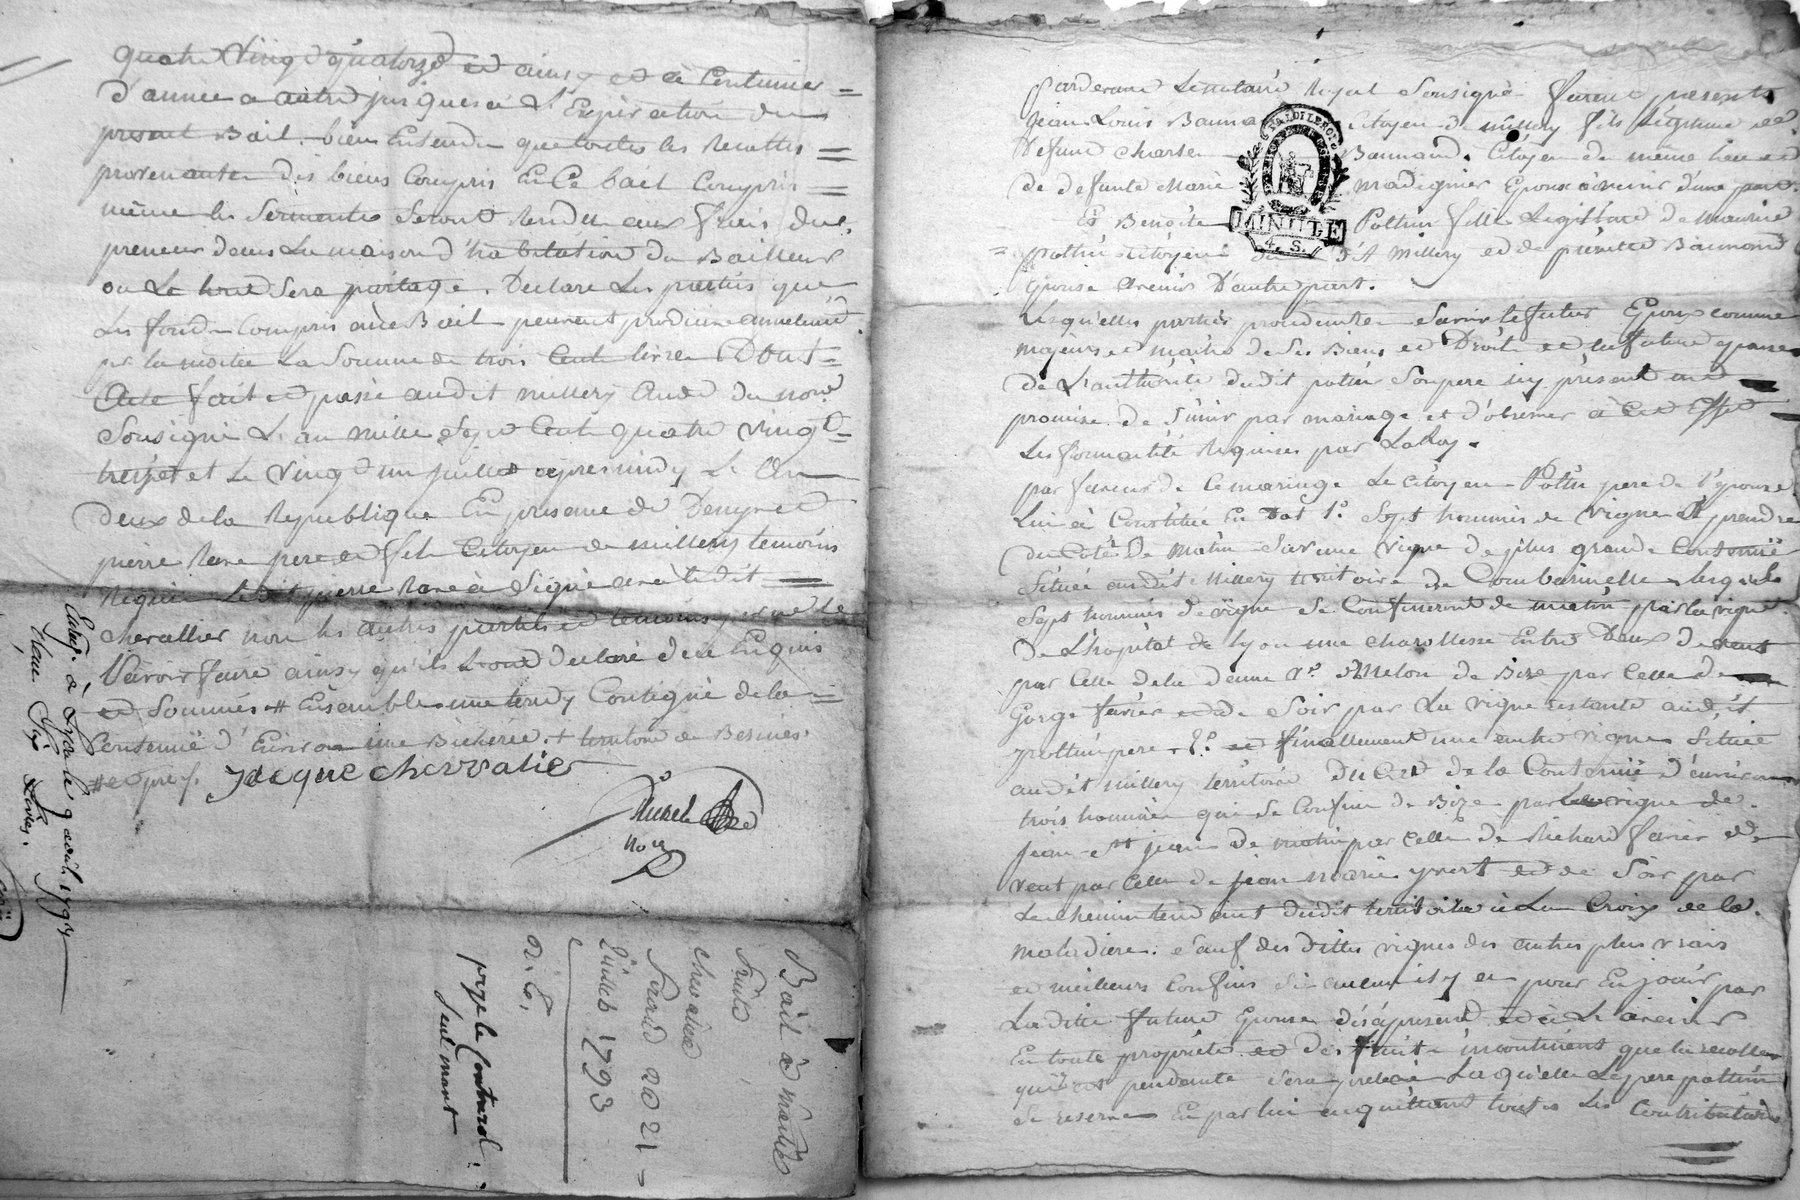 quatre Vingd quatorze et ainsy et à Continuer =
d'année a autre jusques à L'Expiration du
present Bail. bien Entendu que toutes les Recoltes =
provenantes des biens Compris En Ce bail Compris =
même les Sermentes Seront Rendu aux frais du
preneur dans La maison d'habitation du Bailleur
ou Le tout Sera partagé. Declare Les parties que
Les fonds Compris au Bail peuvent produire annuelement
par la moitié La Somme de trois Cent livre Dont =
Acte fait et passé audit millery Etude du nore
Sousigné L'an mille Sept Cent quatre vingt =
treize et Le Vingt un juillet apres midy L'An
deux de la Republique En presence de Denys et
pierre Rane pere et fils Citoyen de millery temoins
Requis Ledit pierre Rane à Signé avec ledit =
chevallier non les autres parties et temoins pour ne le
Savoir faire ainsy qu'ils L'ont declaré de ce Enquis
et Sommés # Ensemble une Contigue de la =
Contenüe d'Environ une Bicherée + territoire de
Jacque chervalier
nore
Enreg. à le 9 aoust 1793
Bail à moitié
fruits
chevalier
du 21
Juillet 1793
a. E.
paye le Controle
seulmant
pardevant Le notaire Royal Sousigné furent presents
jean Louis Bauna Citoyen de millery fils Légitime de
defunt charle Baunand. Citoyen du même lieu et
de defunte Marie madignier Epoux à venir d'une part.
NAL DU LEROI
MINUTE
4. S.
Et Benoite Pothin fille Legitime de Maurice
= pothin Citoyen d' millery et de pierrette Baunand
Epouse avenir D'autre part.
Lesquelles parties procedantes Savoir le futur Epoux comme
majeur et maitre de Ses Biens et Droits et la future epouse
de L'authorité dudit pothin Son pere icy présent ont
promise de S'unir par mariage et d'observer à Cet Effet
Les formalité Requises par La Loy.
par faveur de Ce mariage Le Citoyen Pothin pere de l'épouse
Lui à Constitué En Dot 1°. Sept hommés de vigne à prendre
du Coté De Matin Sur une vigne de plus grande Contenüe
Située audit Millery territoire de Combarinelle Lesquels
Sept hommés de vigne Se Confineront de matin par la vigne
De L'hopital de Lyon une charollesse Entre Deux de vent
par Celle de la dame Ve. Melon de Bize par Celle de
Gorge favier et de Soir par La vigne restante audit
pothin pere. 2°. et finallement une autre vigne Située
audit millery territoire du de la Contenüe d'environ
trois hommée qui Se Confine de Bize par la vigne de
jean St jean de matin par Celle de Richard favier de
vent par Celle de jean marie et de Soir par
Le chemin tendant dudit territoire à La Croix de la
maladiere. Sauf des dittes vignes des autres plus vrais
et meilleurs Confins Si aucun il y a pour En jouir par
Laditte future Epouse dès à present et à L'avenir
En toute propriété et des fruits incontinent que la recolte
qui est pendante Sera prelevée Laquelle Le pere pothin
Se reserve En par lui acquittant toutes Les Contributions